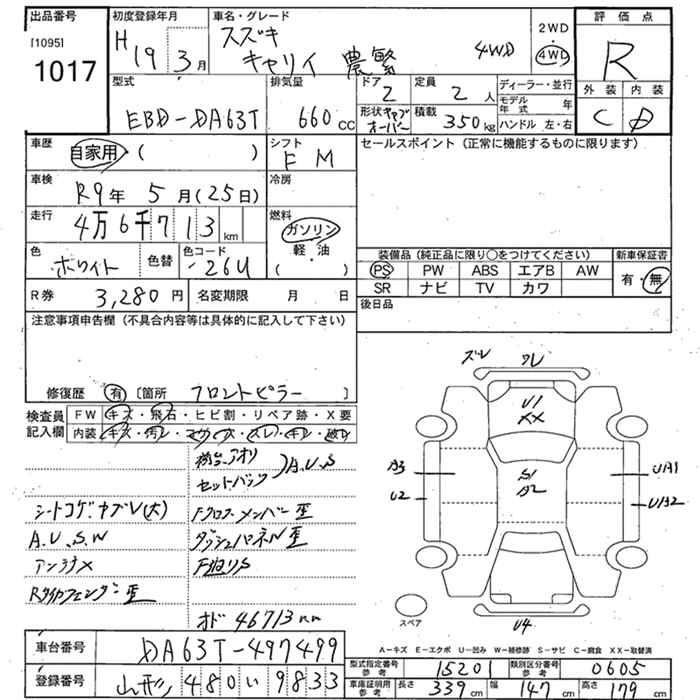 出品番号
[1095]
1017
初度登録年月
H 19 3月
車名・グレード
スズキ
キャリイ 農繁 4WD
2WD
4WD
評価点
R
外装 内装
C D
型式
EBD-DA63T
排気量
660 cc
ドア
2
定員
2人
形状 キャブオーバー
積載
350kg
ディーラー・並行
モデル年式 年
ハンドル 左・右
車歴
自家用 ( )
シフト
F M
セールスポイント(正常に機能するものに限ります)
車検
R9年 5月(25日)
冷房
走行
4万6千713km
燃料
ガソリン
軽・油
( )
色
ホワイト
色替
色コード
26U
装備品(純正品に限り○をつけてください)
新車保証書
PS PW ABS エアB AW
SR ナビ TV カワ
有・無
R券 3,280円
名変期限 月 日
後日品
注意事項申告欄(不具合内容等は具体的に記入して下さい)
修復歴 有 [箇所 フロントピラー ]
検査員記入欄
FW キズ・飛石・ヒビ割・リペア跡・X要
内装 キズ・汚レ・
荷台、アオリ
セットバック
A.U.S
シートコゲ、ヤブレ(大)
Fクロスメンバー歪
A.U.S.W
ダッシュパネル歪
アンテナX
RタイヤフェンダーE歪
オド 46713km
ズレ
クレ
U1
XX
A3
U2
S1
A2
UA1
U4
スペア
A-キズ E-エクボ U-凹み W-補修跡 S-サビ C-腐食 XX-取替済
車台番号
DA63T-497499
登録番号
山形 480 い 9833
型式指定番号 参考
15201
類別区分番号 参考
0605
車庫証明用 参考
長さ 339cm
幅 147cm
高さ 179cm